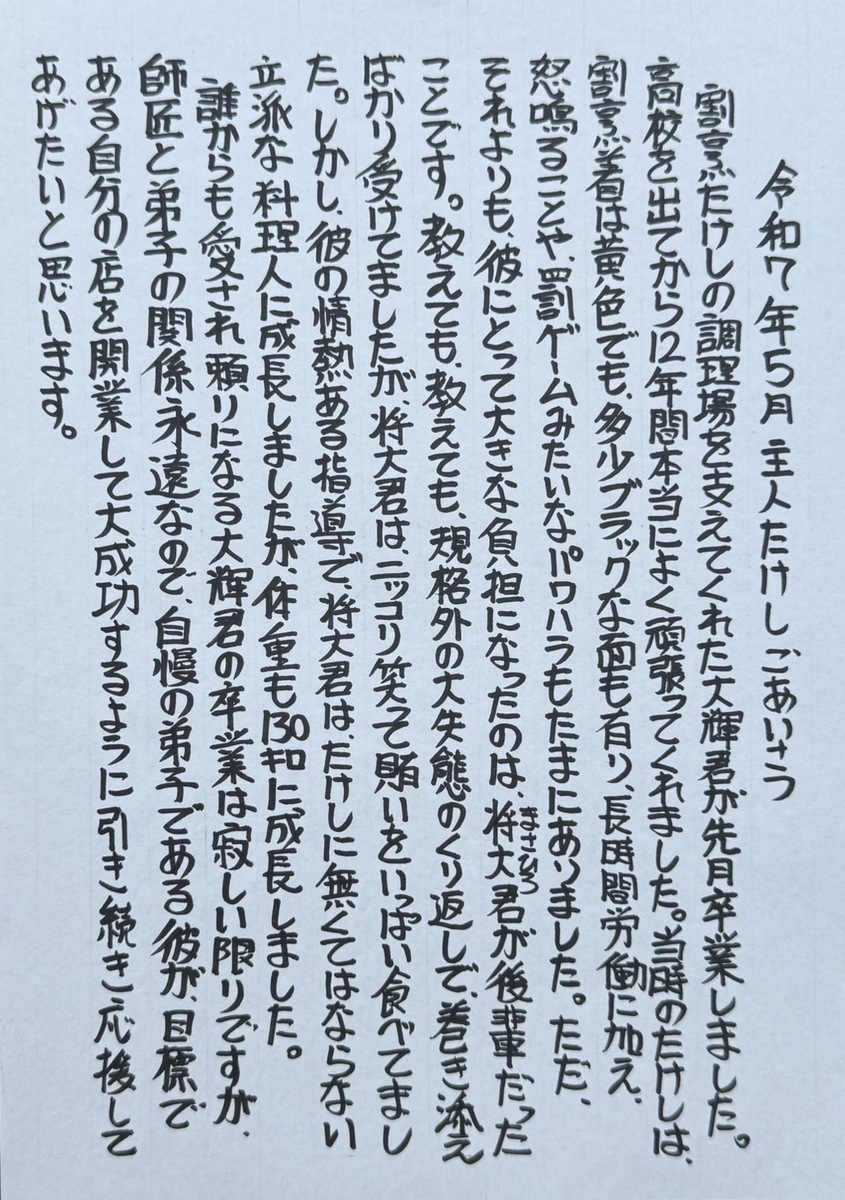 令和7年5月 主人たけし ごあいさつ
割烹たけしの調理場を支えてくれた大輝君が先月卒業しました。
高校を出てから12年間本当によく頑張ってくれました。当時のたけしは、
割烹着は黄色でも、多少ブラックな面も有り、長時間労働に加え、
怒鳴ることや、罰ゲームみたいなパワハラもたまにありました。ただ、
それよりも、彼にとって大きな負担になったのは、将大君が後輩だった
まさひろ
ことです。教えても、教えても、規格外の大失態のくり返しで、巻き添え
ばかり受けてましたが、将大君は、ニッコリ笑って賄いをいっぱい食べてまし
た。しかし、彼の情熱ある指導で、将大君は、たけしに無くてはならない
立派な料理人に成長しましたが、体重も130キロに成長しました。
誰からも愛され頼りになる大輝君の卒業は寂しい限りですが、
師匠と弟子の関係永遠なので、自慢の弟子である彼が、目標で
ある自分の店を開業して大成功するように引き続き応援して
あげたいと思います。